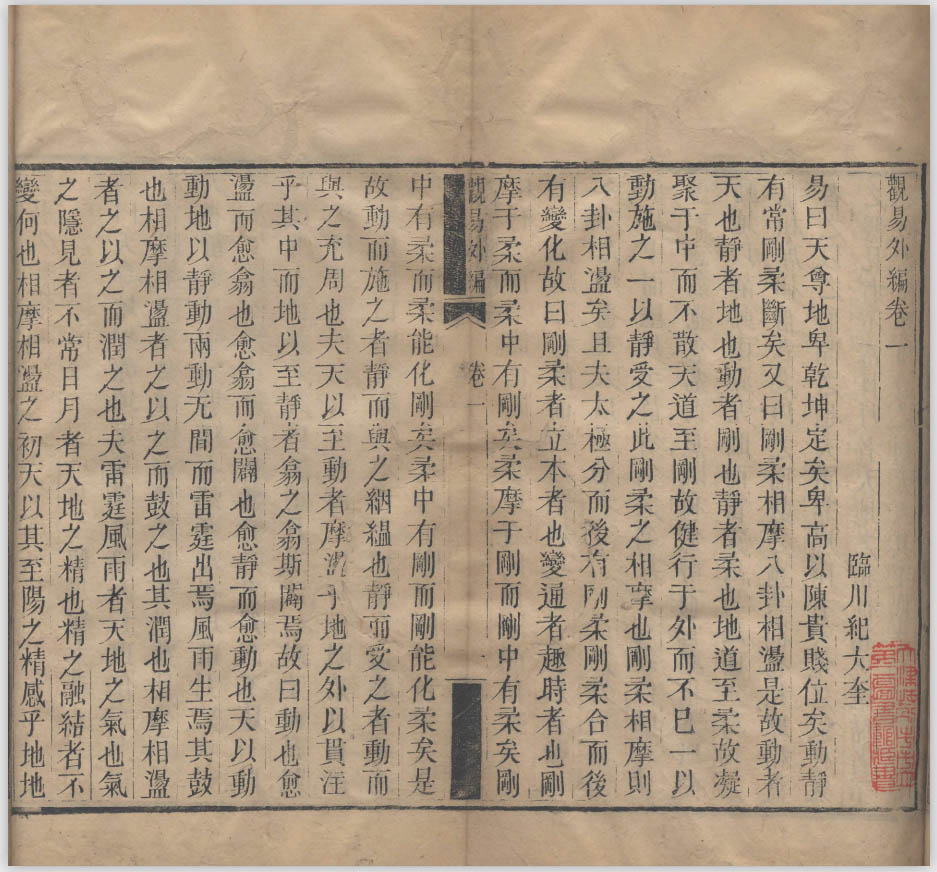 觀易外編卷一
臨川紀大奎
易曰天尊地卑乾坤定矣卑高以陳貴賤位矣動靜
有常剛柔斷矣又曰剛柔相摩八卦相盪是故動者
天也靜者地也動者剛也靜者柔也地道至柔故凝
聚于中而不散天道至剛故健行于外而不已一以
動施之一以靜受之此剛柔之相摩也剛柔相摩則
八卦相盪矣且夫太極分而後有剛柔剛柔合而後
有變化故曰剛柔者立本者也變通者趣時者也剛
摩于柔而柔中有剛矣柔摩于剛而剛中有柔矣剛
觀易外編 卷一
中有柔而柔能化剛矣柔中有剛而剛能化柔矣是
故動而施之者靜而與之絪縕也靜而受之者動而
與之充周也夫天以至動者摩盪乎地之外以貫注
乎其中而地以至靜者翕之翕斯闢焉故曰動也愈
盪而愈翕也愈翕而愈闢也愈靜而愈動也天以動
動地以靜動兩動无間而雷霆出焉風雨生焉其鼓
也相摩相盪者之以之而鼓之也其潤也相摩相盪
者之以之而潤之也夫雷霆風雨者天地之氣也氣
之隱見者不常日月者天地之精也精之融結者不
變何也相摩相盪之初天以其至陽之精感乎地地